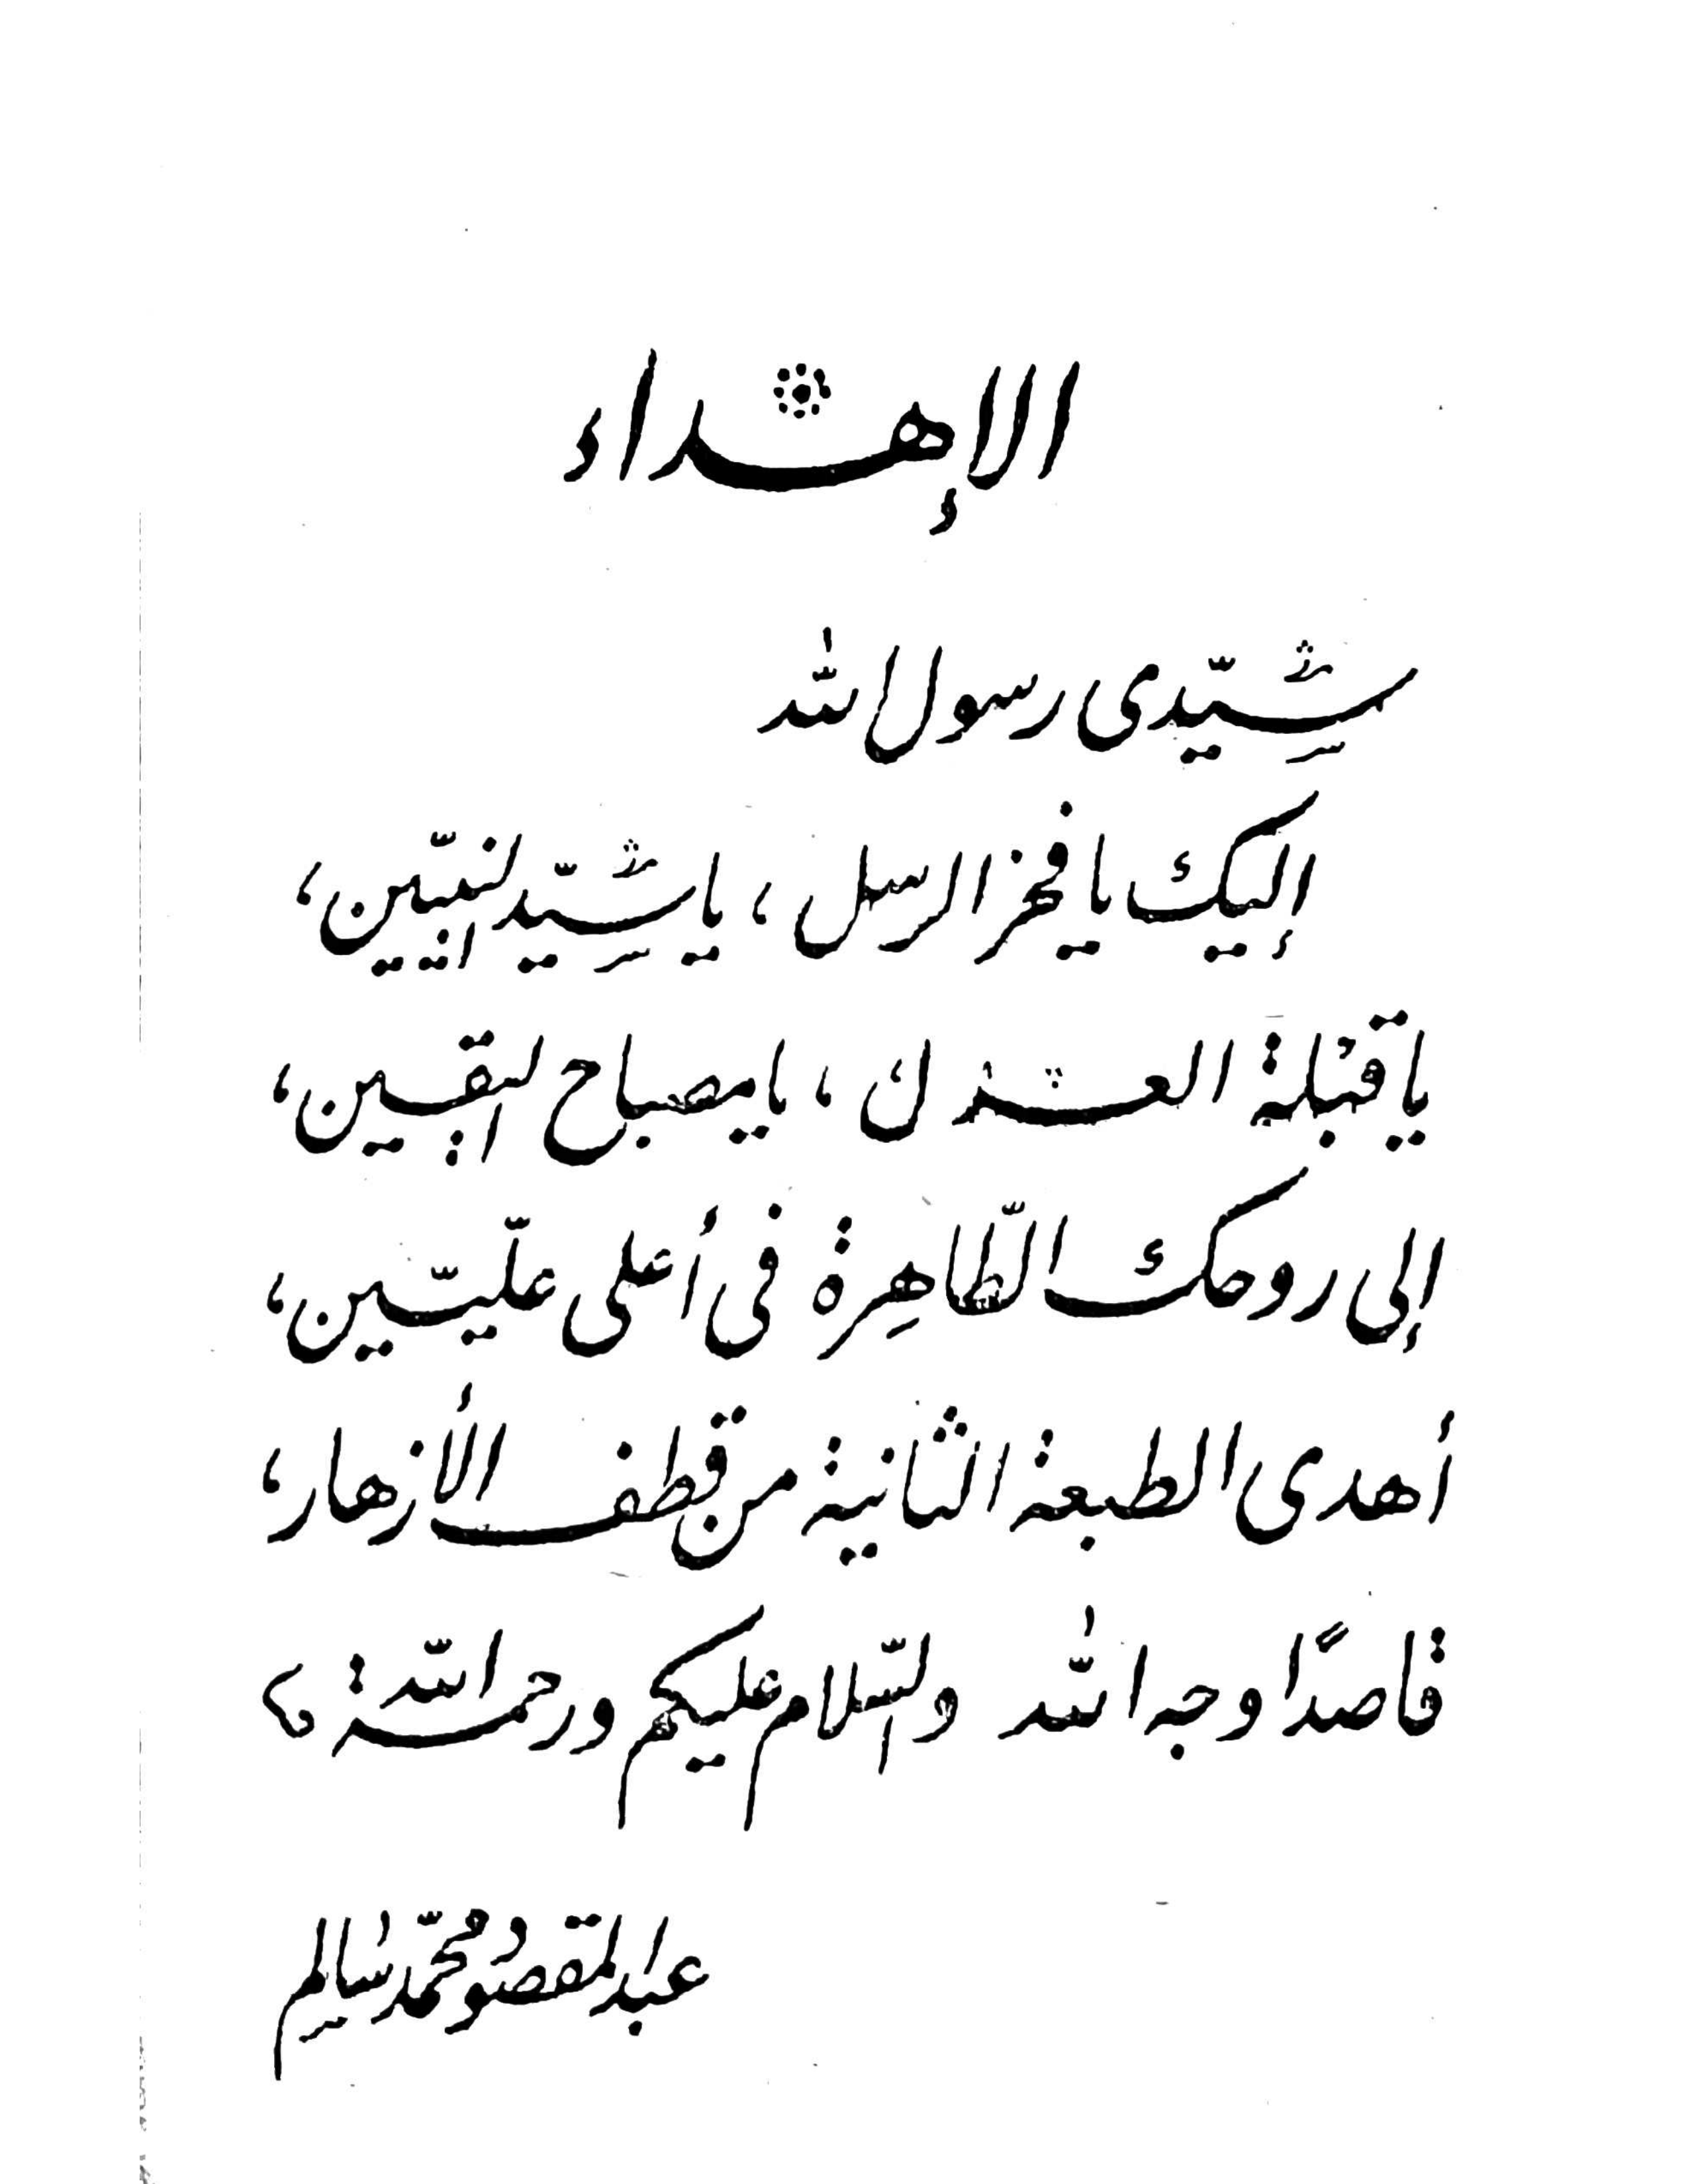 الإهداء
سيّدى رسول الله
إليك يا فخر الرسل، يا سيّد النبيّين،
يا قبلة العدل، يا مصباح اليقين،
إلى روحك الطّاهرة فى أعلى عليّين،
أهدى الطبعة الثانية من قطف الأزهار،
قاصدًا وجه الله والسّلام عليكم ورحمة الله
عبد المقصود محمّد سالم